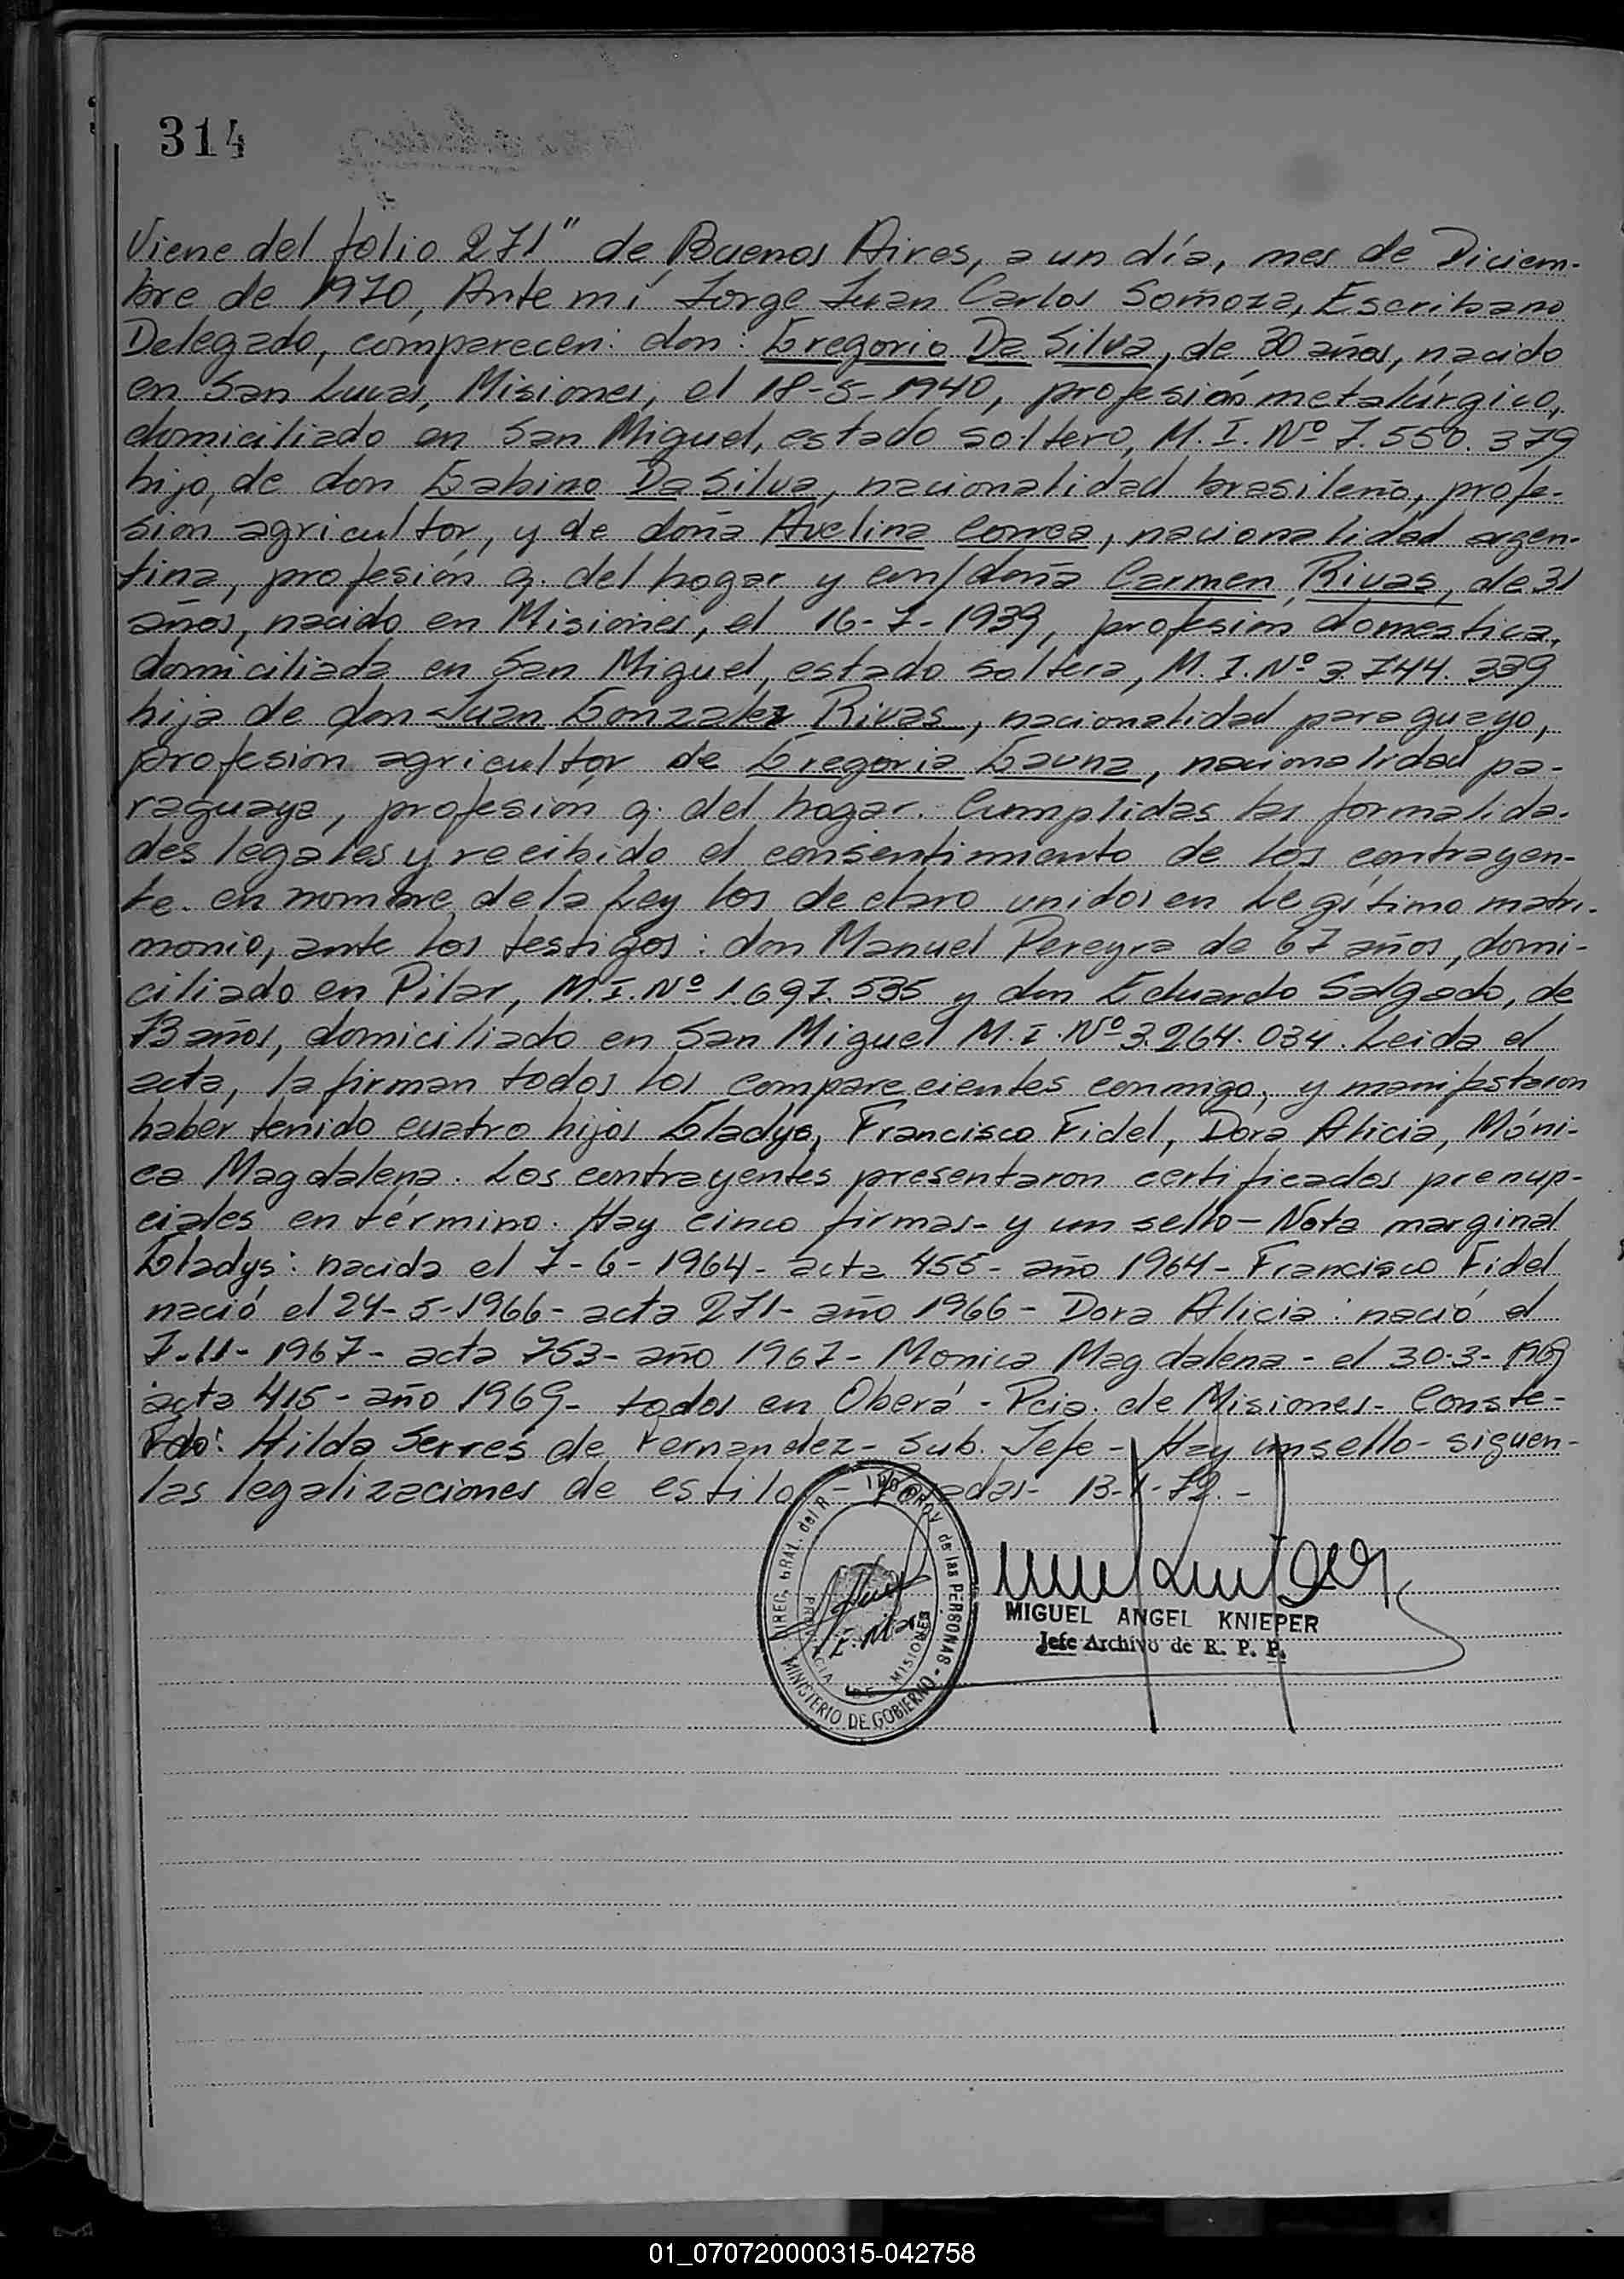 314
Viene del folio 271" de Buenos Aires, a un día, mes de Diciem-
bre de 1970, Ante mí Jorge Juan Carlos Somoza, Escribano
Delegado, comparecen: don: Gregorio Da Silva, de 30 años, nacido
en San Lucas, Misiones, el 18-5-1940, profesión metalúrgico,
domiciliado en San Miguel, estado soltero, M. I. Nº 7.550.379
hijo, de don Gabino Da Silva, nacionalidad brasileña, profe-
sión agricultor, y de doña Avelina Correa, nacionalidad argen-
tina, profesión q. del hogar y con/doña Carmen Rivas, de 31
años, nacido en Misiones, el 16-7-1939, profesión domestica,
domiciliada en San Miguel, estado soltera, M. I. Nº 3.744.339
hija de don Juan Gonzalez Rivas, nacionalidad paraguayo,
profesion agricultor de Gregoria Gauna, nacionalidad pa-
raguaya, profesión q. del hogar. Cumplidas las formalida-
des legales y recibido el consentimiento de los contrayen-
te. en nombre de la Ley los declaro unidos en Legítimo matri-
monio, ante los testigos: don Manuel Pereyra de 67 años, domi-
ciliado en Pilar, M. I. Nº 1.697.535 y don Eduardo Salgado, de
73 años, domiciliado en San Miguel M. I. Nº 3.264.034. Leida el
acta, la firman todos los comparecientes conmigo, y manifestaron
haber tenido cuatro hijos Gladys, Francisco Fidel, Dora Alicia, Móni-
ca Magdalena. Los contrayentes presentaron certificados prenup-
ciales en término. Hay cinco firmas- y un sello- Nota marginal
Gladys: nacida el 7-6-1964- acta 455- año 1964- Francisco Fidel
nació el 24-5-1966- acta 271- año 1966- Dora Alicia: nació el
7-11-1967- acta 753- año 1967- Monica Magdalena- el 30-3-1969
acta 415- año 1969- todos en Oberá- Pcia. de Misiones- Conste-
Fdo: Hilda Serres de Fernandez- Sub. Jefe- Hay un sello- siguen-
las legalizaciones de estilo- Posadas- 13-1-72.-
DIREC. GRAL. del R de las PERSONAS
PROVINCIA DE MISIONES
MINISTERIO DE GOBIERNO
MIGUEL ANGEL KNIEPER
Jefe Archivo de R. P. P.
01_070720000315-042758